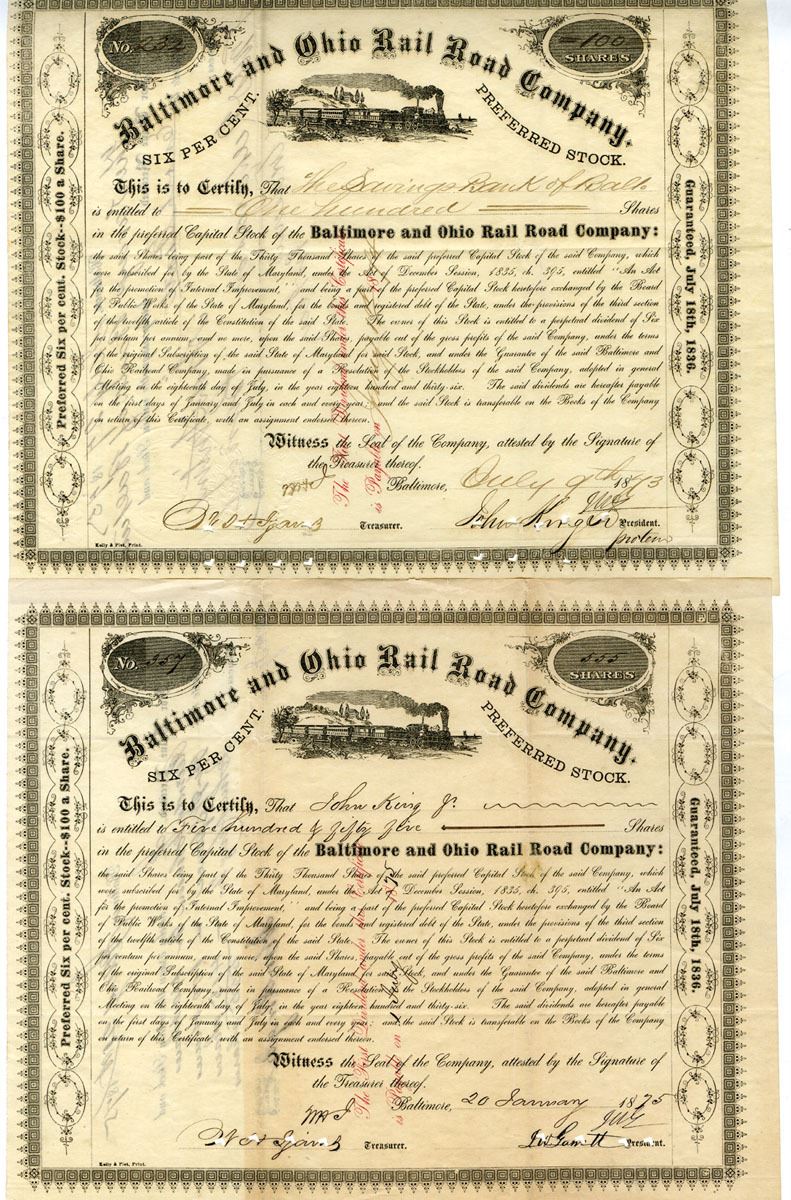 No. 232
-100-
SHARES
Baltimore and Ohio Rail Road Company.
SIX PER CENT. PREFERRED STOCK.
Preferred Six per cent. Stock--$100 a Share.
Guaranteed, July 18th, 1836.
This is to Certify, That The Savings Bank of Balto
is entitled to One hundred Shares
in the preferred Capital Stock of the Baltimore and Ohio Rail Road Company:
the said Shares being part of the Thirty Thousand Shares of the said preferred Capital Stock of the said Company, which
were subscribed for by the State of Maryland, under the Act of December Session, 1835, ch. 395, entitled "An Act
for the promotion of Internal Improvement," and being a part of the preferred Capital Stock heretofore exchanged by the Board
of Public Works of the State of Maryland, for the bonds and registered debt of the State, under the provisions of the third section
of the twelfth article of the Constitution of the said State. The owner of this Stock is entitled to a perpetual dividend of Six
per centum per annum, and no more, upon the said Shares, payable out of the gross profits of the said Company, under the terms
of the original Subscription of the said State of Maryland for said Stock, and under the Guarantee of the said Baltimore and
Ohio Railroad Company, made in pursuance of a Resolution of the Stockholders of the said Company, adopted in general
Meeting on the eighteenth day of July, in the year eighteen hundred and thirty-six. The said dividends are hereafter payable
on the first days of January and July in each and every year, and the said Stock is transferable on the Books of the Company
on return of this Certificate, with an assignment endorsed thereon.
The First Dividend under this Certificate
is Payable on
Witness the Seal of the Company, attested by the Signature of
the Treasurer thereof.
Baltimore, July 9th 1873
Treasurer. John King Jr President.
protem
Kelly & Piet, Print.
No. 357
555
SHARES
Baltimore and Ohio Rail Road Company.
SIX PER CENT. PREFERRED STOCK.
Preferred Six per cent. Stock--$100 a Share.
Guaranteed, July 18th, 1836.
This is to Certify, That John King Jr
is entitled to Five hundred & fifty five Shares
in the preferred Capital Stock of the Baltimore and Ohio Rail Road Company:
the said Shares being part of the Thirty Thousand Shares of the said preferred Capital Stock of the said Company, which
were subscribed for by the State of Maryland, under the Act of December Session, 1835, ch. 395, entitled "An Act
for the promotion of Internal Improvement," and being a part of the preferred Capital Stock heretofore exchanged by the Board
of Public Works of the State of Maryland, for the bonds and registered debt of the State, under the provisions of the third section
of the twelfth article of the Constitution of the said State. The owner of this Stock is entitled to a perpetual dividend of Six
per centum per annum, and no more, upon the said Shares, payable out of the gross profits of the said Company, under the terms
of the original Subscription of the said State of Maryland for said Stock, and under the Guarantee of the said Baltimore and
Ohio Railroad Company, made in pursuance of a Resolution of the Stockholders of the said Company, adopted in general
Meeting on the eighteenth day of July, in the year eighteen hundred and thirty-six. The said dividends are hereafter payable
on the first days of January and July in each and every year, and the said Stock is transferable on the Books of the Company
on return of this Certificate, with an assignment endorsed thereon.
The First Dividend under this Certificate
is Payable on 1875
Witness the Seal of the Company, attested by the Signature of
the Treasurer thereof.
Baltimore, 20 January 1875
Treasurer. JW Garrett President.
Kelly & Piet, Print.